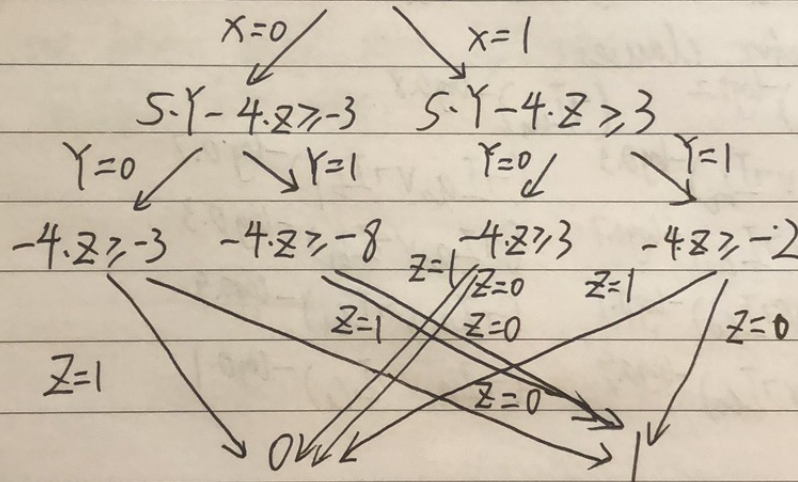 X=0 X=1
5·Y-4·Z≥-3 5·Y-4·Z≥3
Y=0 Y=1 Y=0 Y=1
-4·Z≥-3 -4·Z≥-8 -4·Z≥3 -4·Z≥-2
Z=1 Z=0 Z=1
Z=1 Z=0 Z=0
Z=1 Z=0
0 1